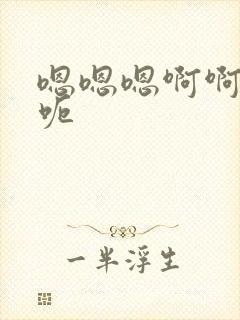 嗯嗯嗯啊啊
呃
一半浮生